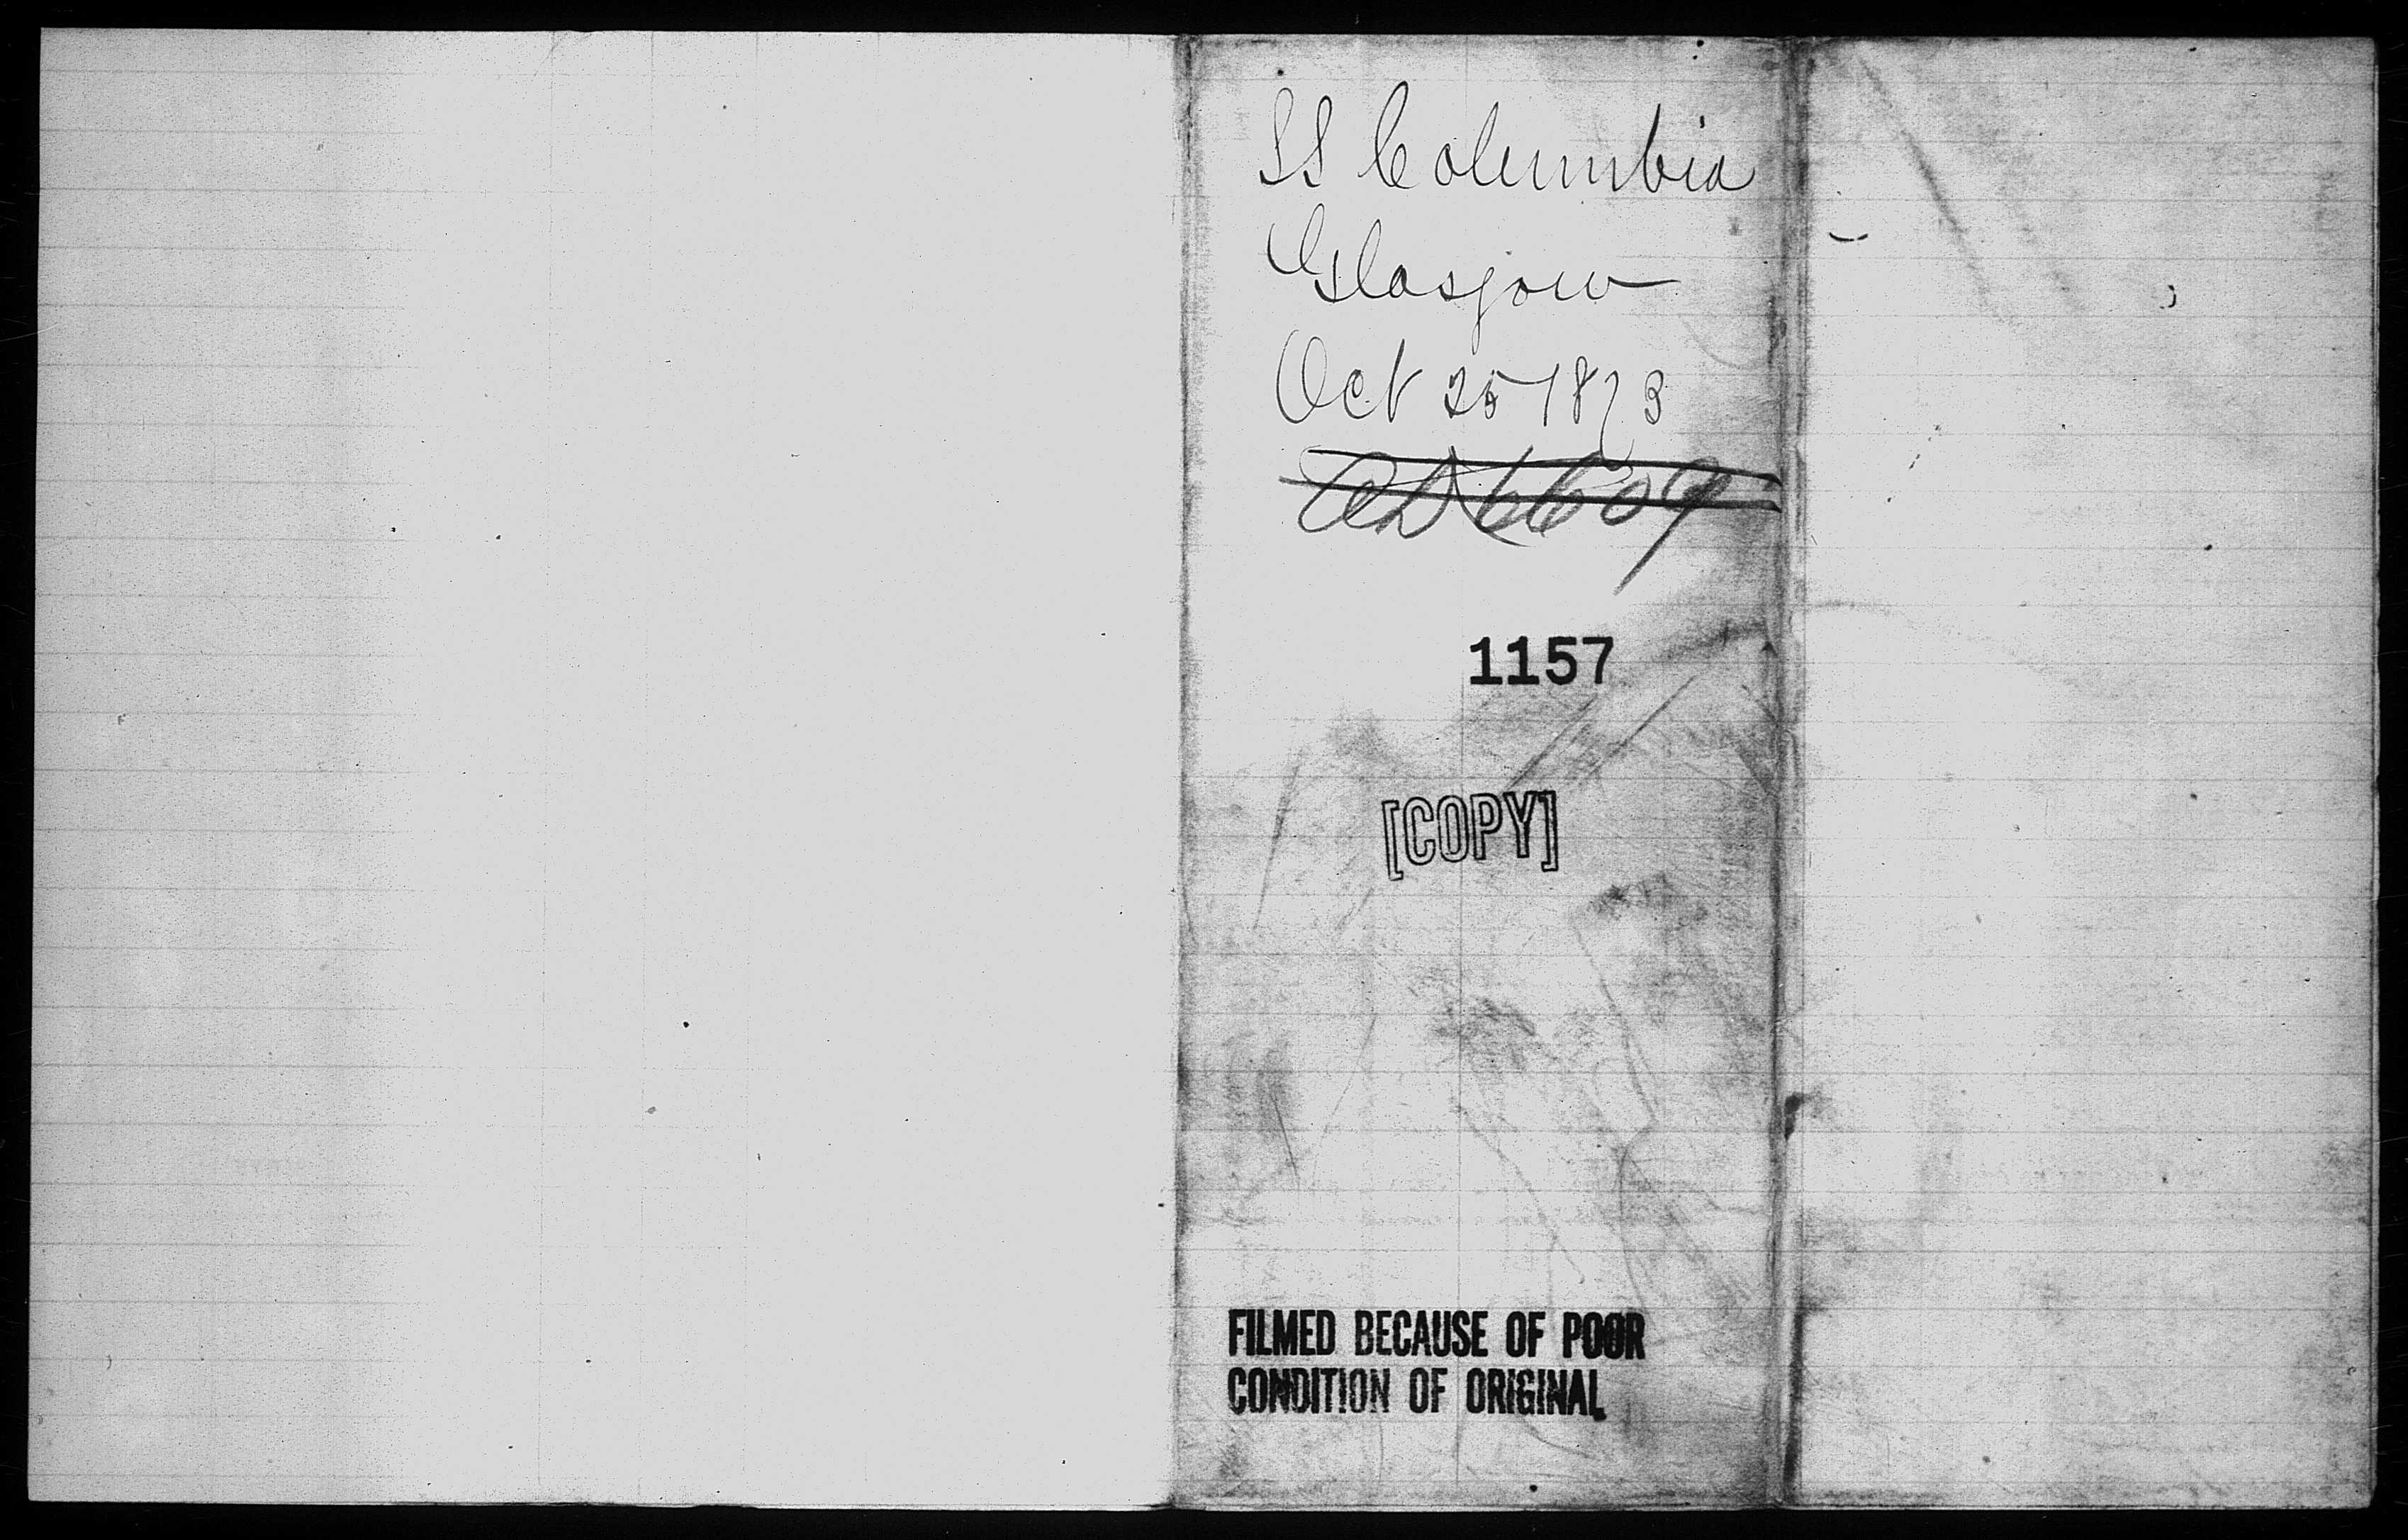 SS Columbia
Glasgow
Oct 25 1873
6609
1157
[COPY]
FILMED BECAUSE OF POOR
CONDITION OF ORIGINAL